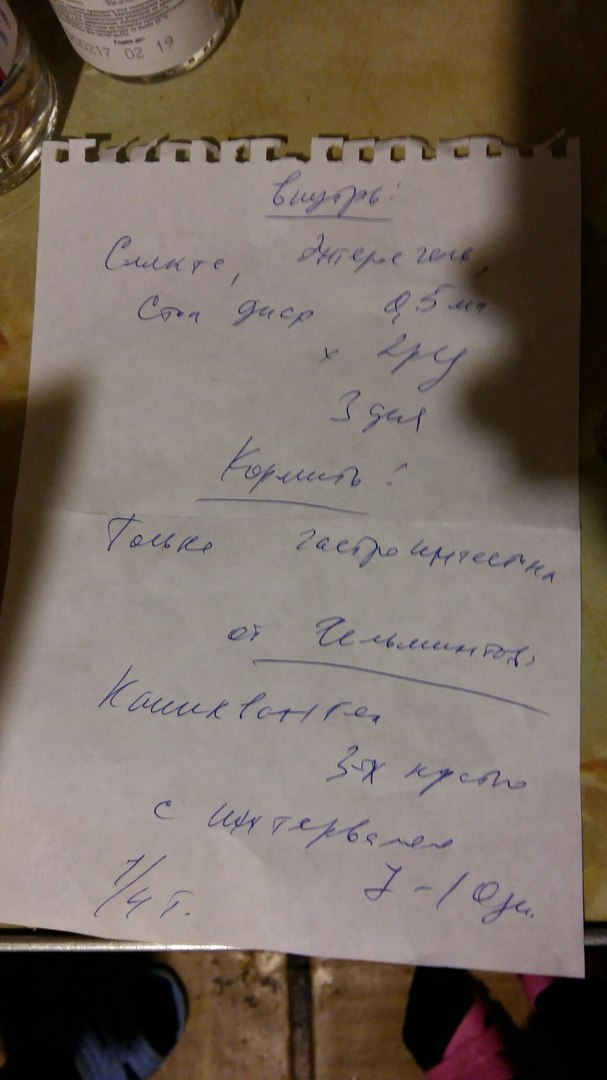 Годен до:
000217 02 19
Внутрь:
Смекта, Энтеросгель,
Стоп диар 0,5 мл
х 2р/д
3 дня
Кормить!
Только гастроинтестинал
от Гельминтов,
Каниквантел
3-х кратно
с интервалом
1/4 т. 7-10дн.